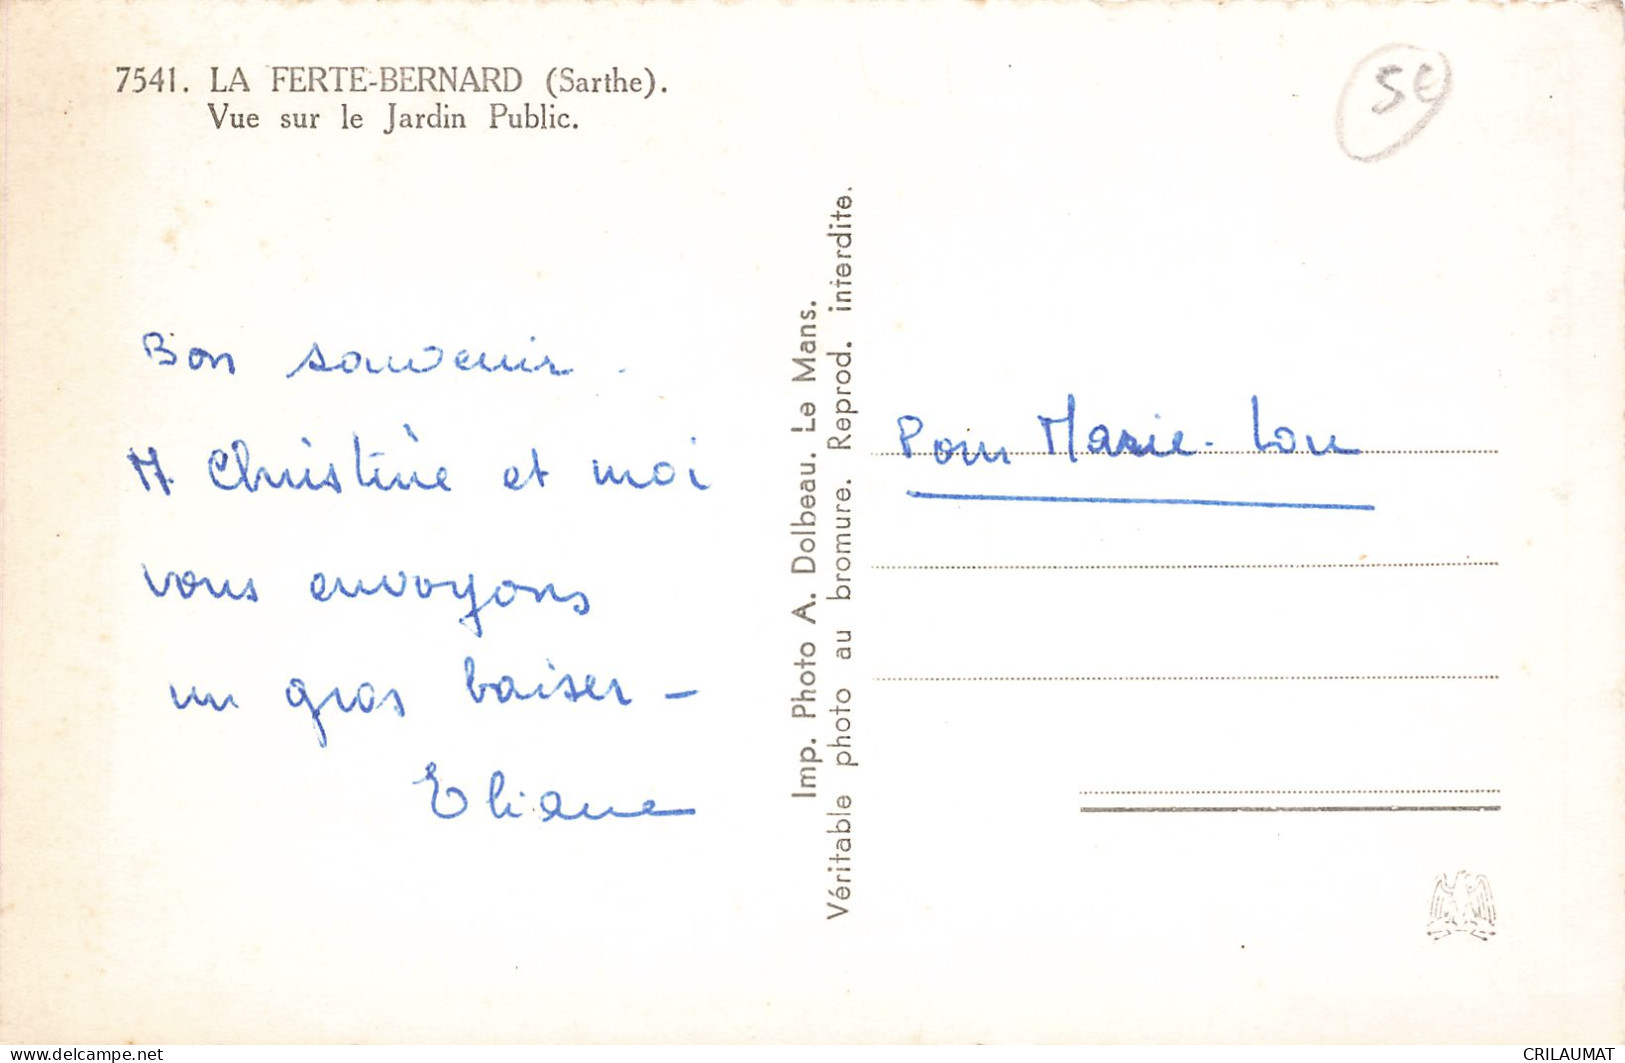 7541. LA FERTE-BERNARD (Sarthe).
Vue sur le Jardin Public.
5€
Bon souvenir.
M Christine et moi
vous envoyons
un gros baiser –
Eliane
Imp. Photo A. Dolbeau. Le Mans.
Véritable photo au bromure. Reprod. interdite.
Pour Marie-Lou
delcampe.net
CRILAUMAT